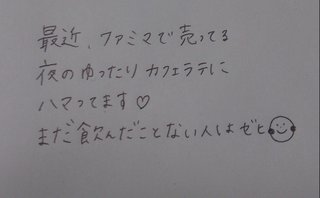 最近、ファミマで売ってる
夜のゆったりカフェラテに
ハマってます♡
まだ飲んだことない人はゼヒ